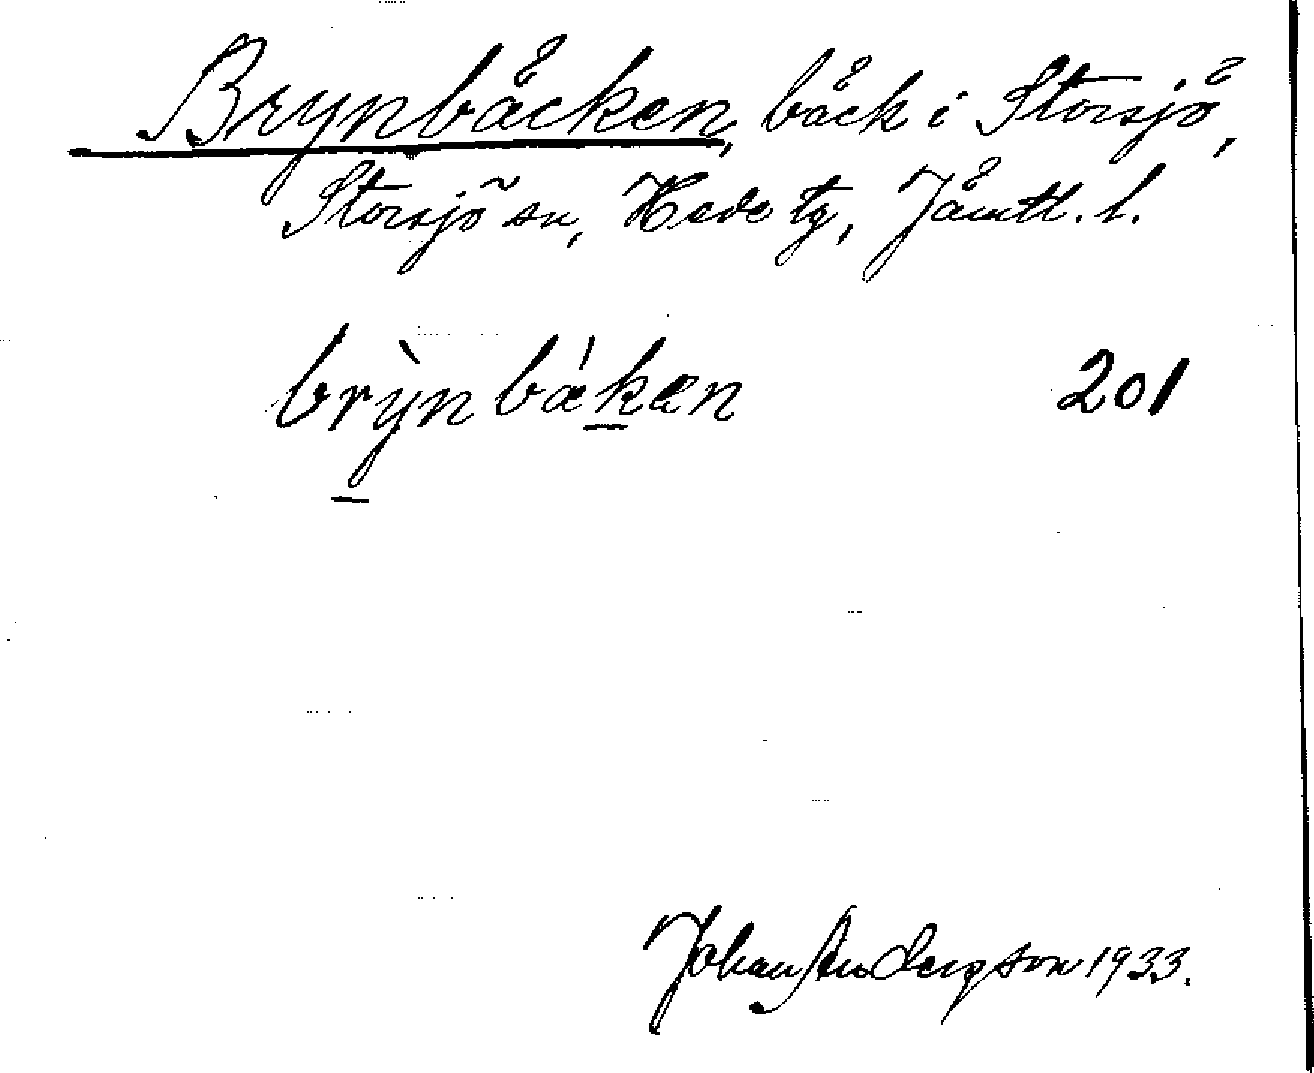 Brynbäcken, bäck i Storsjö,
Storsjö sn, Hede tg, Jämtl. l.
brỳn bǽkæn 201
Johan Andersson 1933.